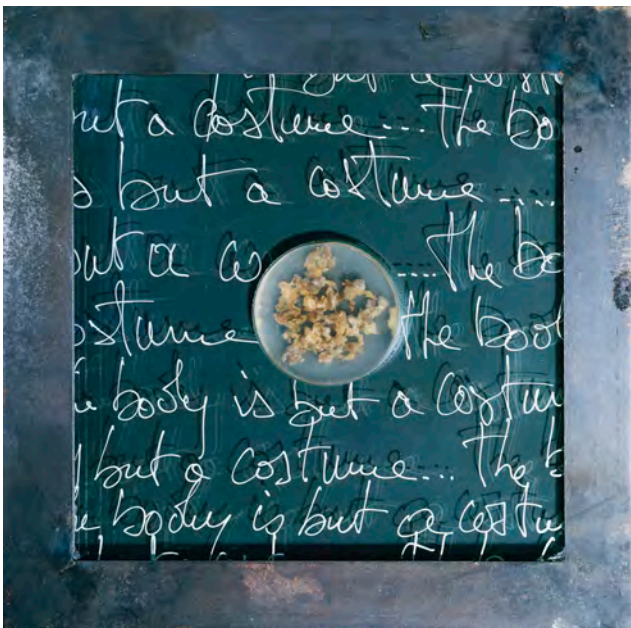 but a cost
but a costume... The bo
s but a costume ....
but a co ... The bo
ostume the bod
e body is but a costum
but a costume... The b
e body is but a costu